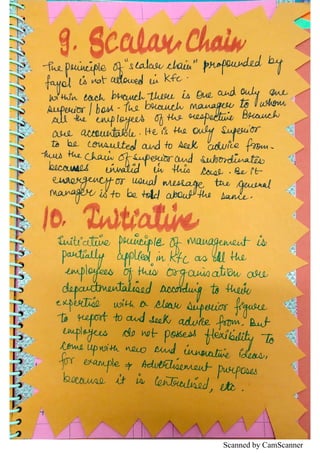 9. Scalar Chain
The principle of "scalar chain" propounded by
fayol is not allowed in Kfc.
Within each branch there is one and only one
superior / boss. The branch manager to whom
all the employees of the respective Branch
are accountable. He is the only superior
to be consulted and to seek advice from.
Thus the Chain of superior and subordinates
becomes invalid in this case. Be it
emergency or usual message, the general
manager is to be told about the same.
10. Initiative
Initiative principle of management is
partially applied in Kfc as all the
employees of this organisation are
departmentalised according to their
expertise with a clear superior figure
to report to and seek advice from. But
employees do not possess flexibility To
come up with new and innovative ideas,
for example → Advertisement purposes
because it is Centralised, etc.
Scanned by CamScanner